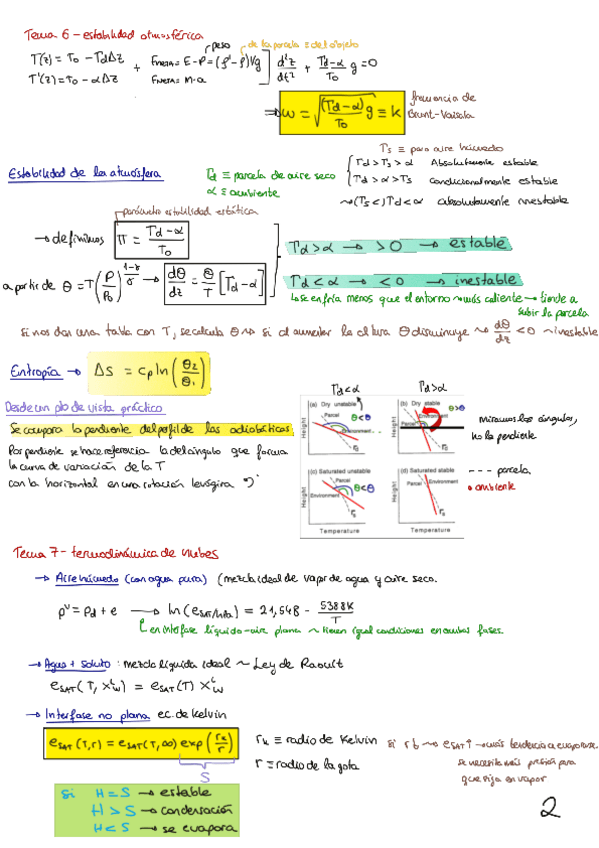 Tema 6 - estabilidad atmosférica
T(z) = T₀ - Γd Δz
T'(z) = T₀ - αΔz
+
peso de la parcela = del objeto
Fneta = E - P = (ρ' - ρ)Vg
Fneta = m·a
d²z/dt² + (Γd - α)/T₀ g = 0
⇒ w = √((Γd - α)/T₀ g) ≡ k
frecuencia de Brunt-Vaisala
Γs ≡ para aire húmedo
Estabilidad de la atmósfera
Γd ≡ parcela de aire seco
α ≡ ambiente
Γd > Γs > α Absolutamente estable
Γd > α > Γs condicionalmente estable
(Γs <) Γd < α absolutamente inestable
parámetro estabilidad estática
→ definimos Π = (Γd - α)/T₀
Γd > α → > 0 → estable
a partir de θ = T(P/P₀)^((1-γ)/γ) → dθ/dz = θ/T [Γd - α]
Γd < α → < 0 → inestable
se enfría menos que el entorno → más caliente → tiende a subir la parcela
si nos dan una tabla con T, se calcula θ si al aumentar la altura θ disminuye dθ/dz < 0 inestable
Entropía → ΔS = cp ln(θ₂/θ₁)
Desde un pto de vista práctico
Se compara la pendiente del perfil de las adiabáticas
Por pendiente se hace referencia la del ángulo que forma
la curva de variación de la T
con la horizontal en una rotación levógira
Γd < α
Γd > α
(a) Dry unstable
Parcel
Environment
θ < θ
Height
(b)
Parcel
Environment
θ > θ
(c) Saturated unstable
Parcel
Environment
θ < θ
Height
(d) Saturated stable
Parcel
Environment
Temperature
Temperature
miramos los ángulos,
no la pendiente
--- parcela
• ambiente
Tema 7 - termodinámica de nubes
→ Aire húmedo (con agua pura) (mezcla ideal de vapor de agua y aire seco.
pᵛ = Pd + e → ln(eSAT/hPa) = 21,548 - 5388K/T
en interfase líquido-aire plana ~ tienen igual condiciones en ambas fases.
→ Agua + soluto : mezcla líquida ideal ~ Ley de Raoult
eSAT(T, Xᴸw) = eSAT(T) Xᴸw
→ Interfase no plana ec. de Kelvin
eSAT(T,r) = eSAT(T,∞) exp(rk/r)
S
rk ≡ radio de Kelvin
r ≡ radio de la gota
si r↓ → eSAT↑ → más tendencia a evaporarse.
se necesita más presión para
que siga en vapor
Si H = S → estable
H > S → condensación
H < S → se evapora
2